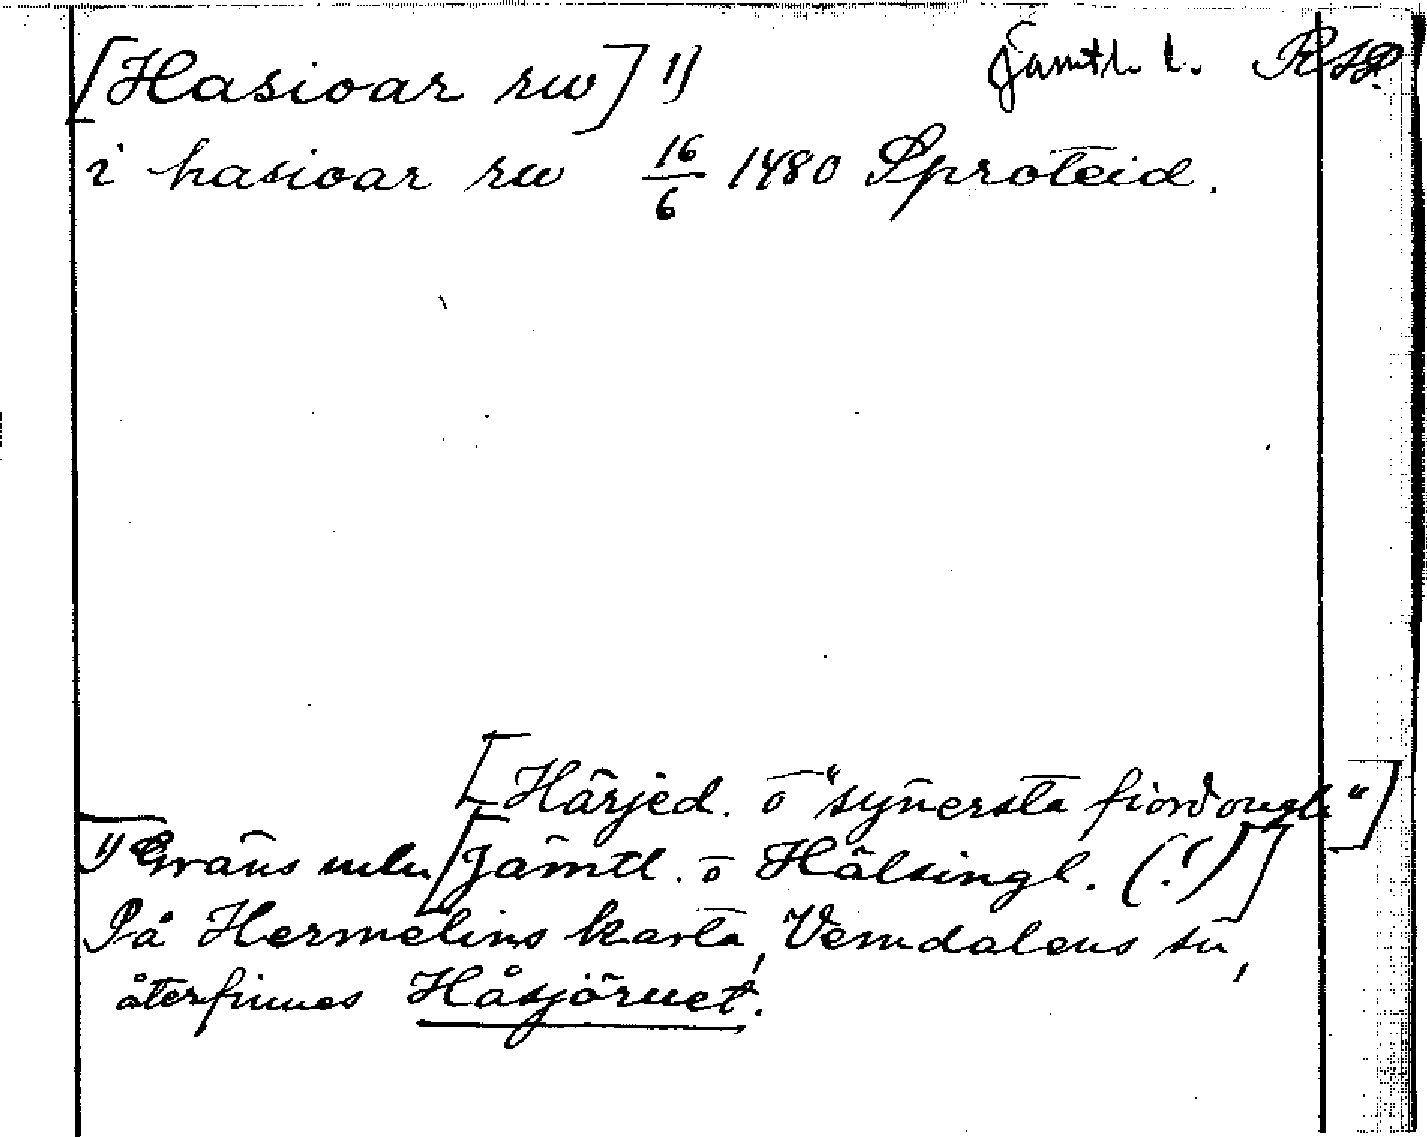 [Hasioar rw] 1) Jämtl. l. RAP.
i hasioar rw 16/6 1480 Sproteid.
[Härjed. o "synersta fiordongh"]
1) Gräns mln [Jämtl. o Hälsingl. (!)]
På Hermelins karta, Vemdalens sn,
återfinnes Håsjöruet.